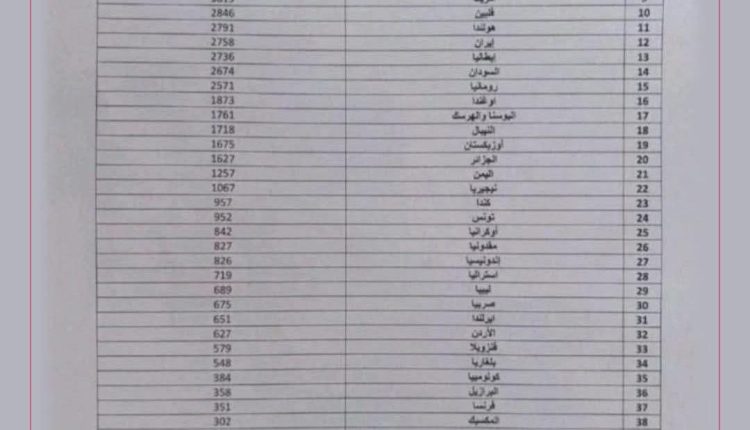 10 فلبين 2846
11 هولندا 2791
12 إيران 2758
13 إيطاليا 2736
14 السودان 2674
15 رومانيا 2571
16 اوغندا 1873
17 البوسنا والهرسك 1761
18 النيبال 1718
19 أوزبكستان 1675
20 الجزائر 1627
21 اليمن 1257
22 نيجيريا 1067
23 كندا 957
24 تونس 952
25 أوكرانيا 842
26 مقدونيا 827
27 إندونيسيا 826
28 استراليا 719
29 ليبيا 689
30 صربيا 675
31 ايرلندا 651
32 الأردن 627
33 فنزويلا 579
34 بلغاريا 548
35 كولومبيا 384
36 البرازيل 358
37 فرنسا 351
38 المكسيك 302